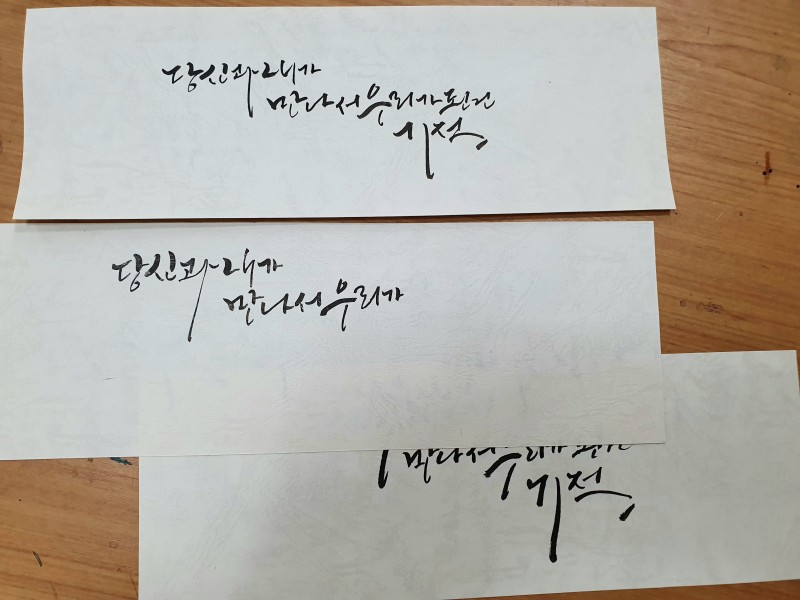 당신과 내가
만나서 우리가 된 건
기적,
당신과 내가
만나서 우리가
만나서 우리가 된 건
기적,